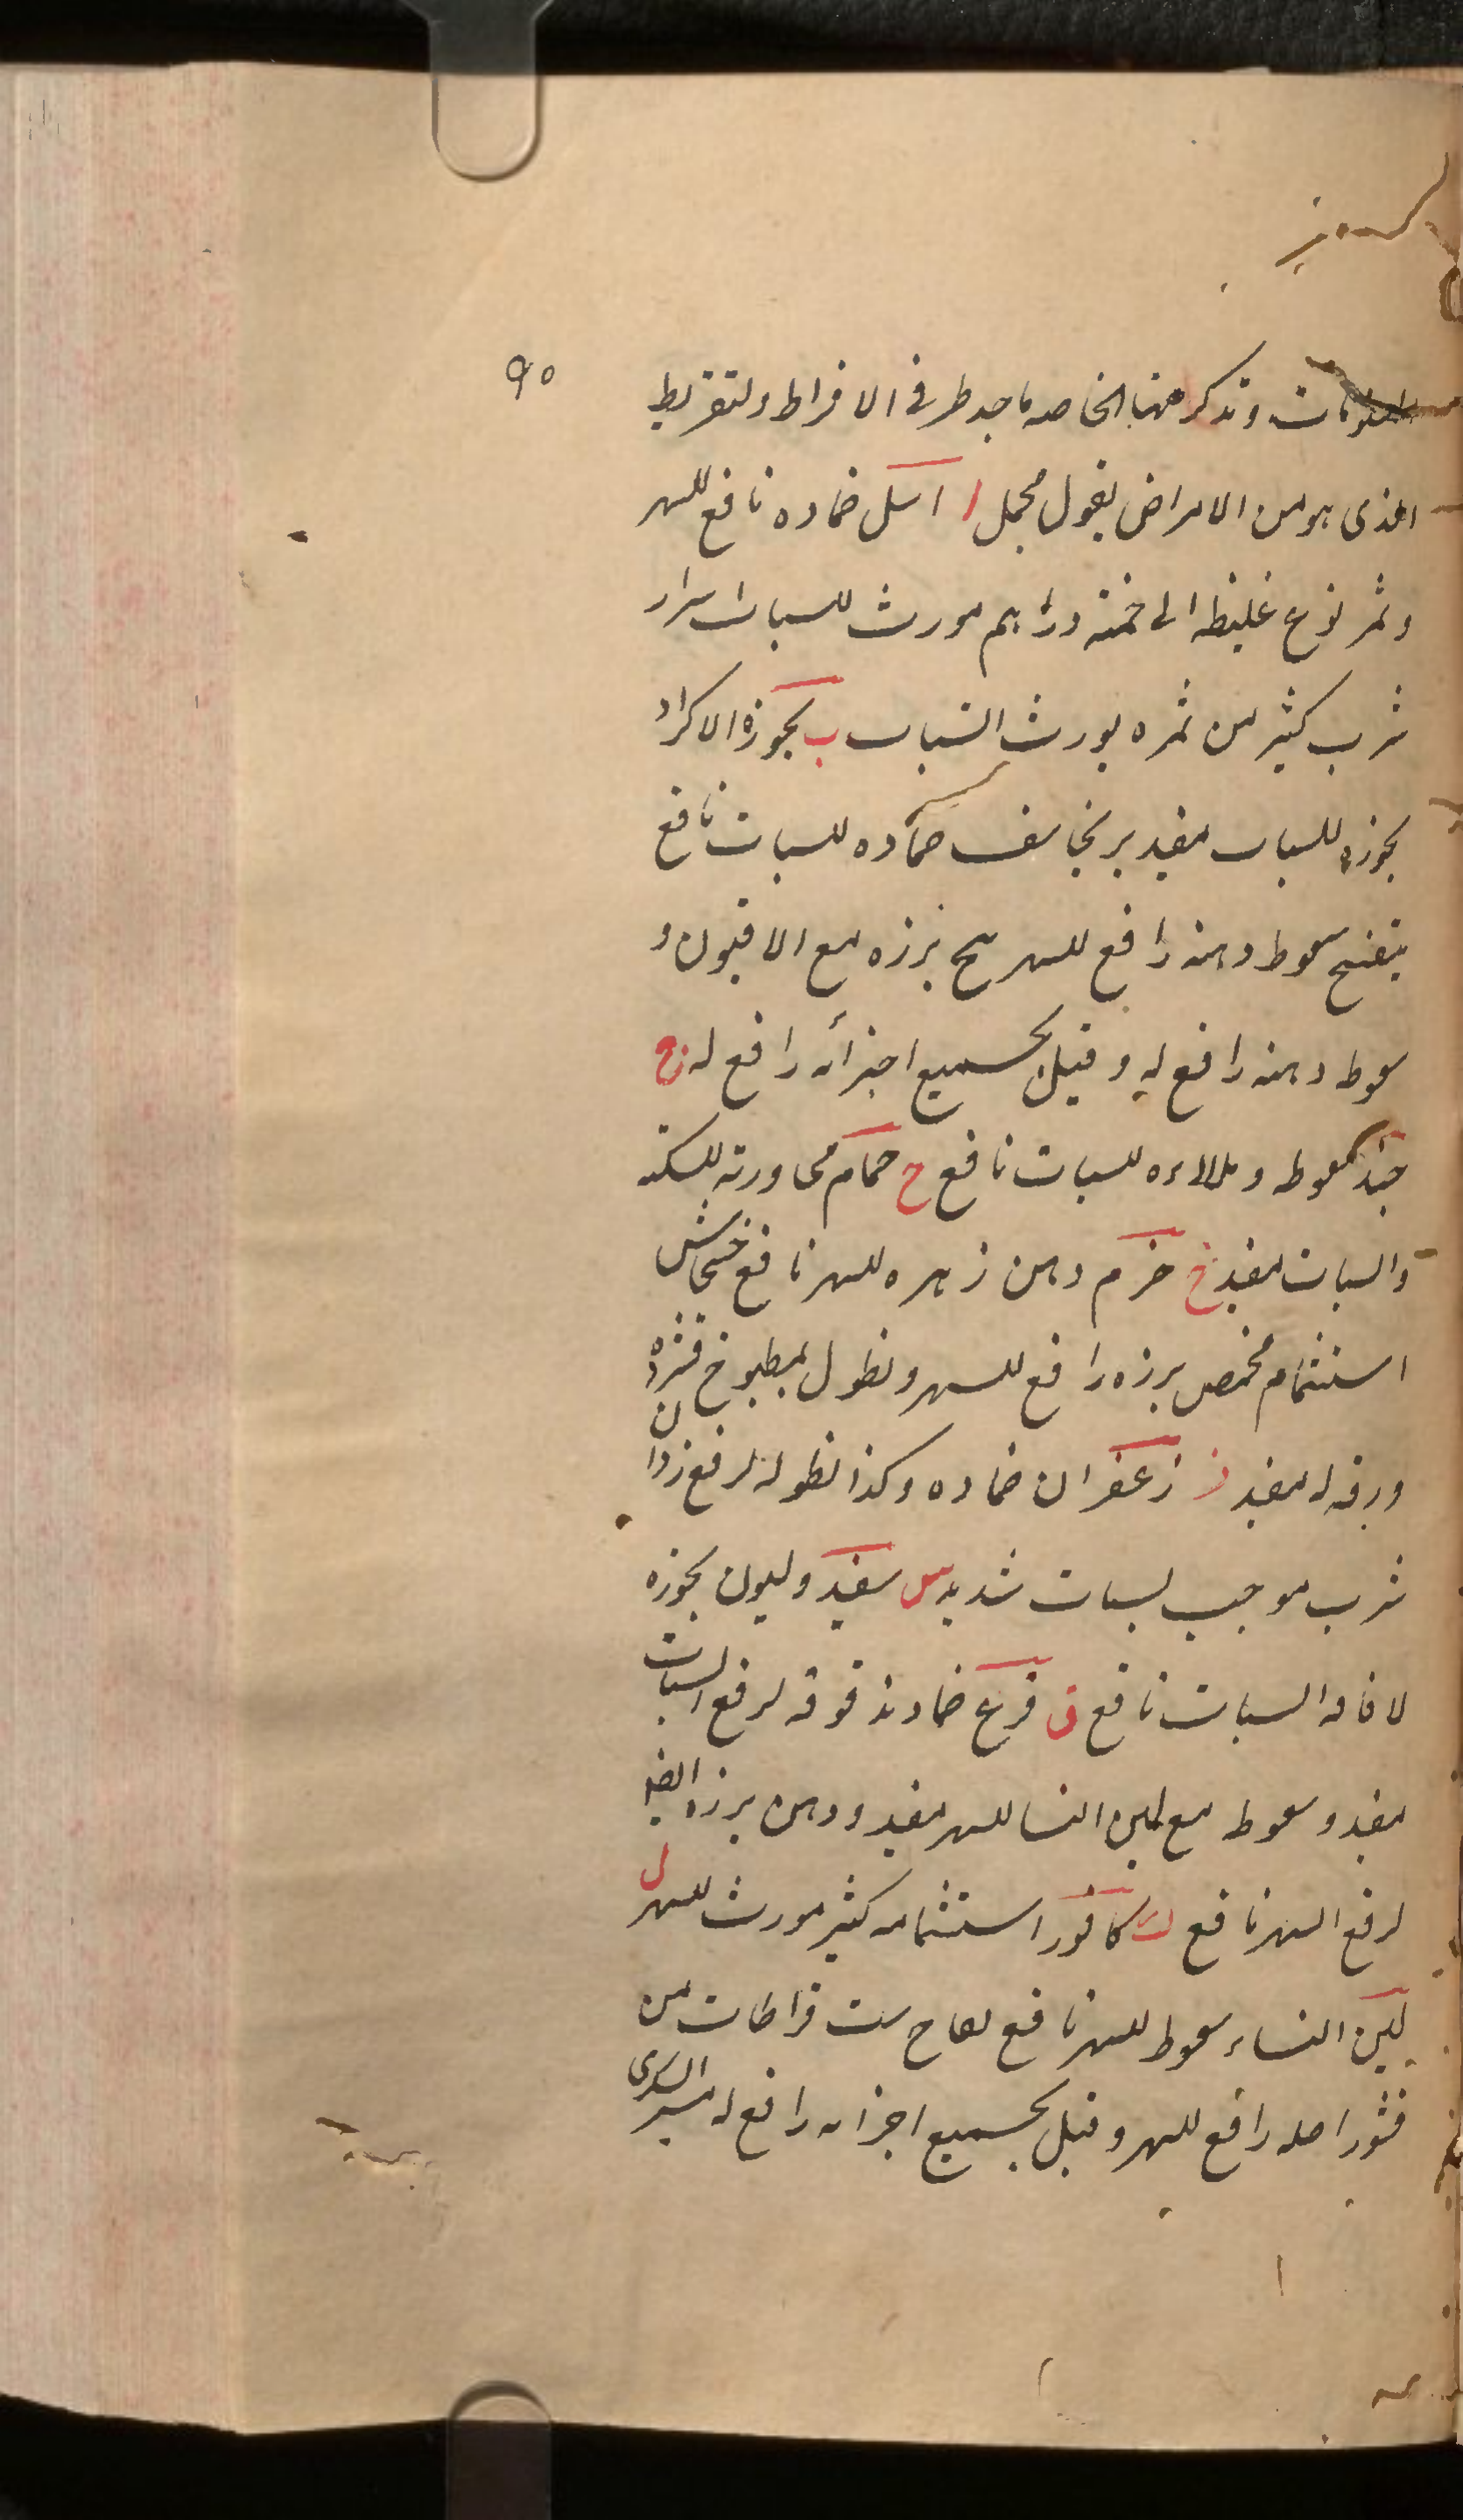 ٩٥
المطولات وتذكر ههنا الخاصه ما جد طر فى الافراط ولتفريط
الذى هو من الامراض بقول مجمل ا اسل ضماده نافع للسهر
وثمر نوع غليظه الى خمسة دراهم مورث للسبات
شرب كثير من ثمره يورث السبات ب بخور الاكراد
بخوره للسبات مفيد برنجاسف ضماده للسبات نافع
بنفسج سعوط دهنه رافع للسهر بنج بزره مع الافيون و
سعوط دهنه رافع له وقيل بجميع اجزائه رافع له ج
جند سعوط و للسبات نافع ح حمام مجاورته للسكته
والسبات مفيد خ خزم دهن زهره للسهر نافع خشخاش
استشمام مخمص بزره رافع للسهر ونطول بمطبوخ قشره
ورقه له مفيد ز زعفران ضماده وكذا نطوله لرفع زوان
شرب موجب لسبات شديد س سفيد وليون بخوره
لافاقه السبات نافع ق قرع ضماد فوقه لرفع السبات
مفيد وسعوط مع لبن النسا للسهر مفيد ودهن بزره ايضا
لرفع السهر نافع ك كافور استشمامه كثير مورث للسهر ل
لبن النساء سعوط للسهر نافع لفاح ست قراطات من
قشور اصله رافع للسهر وقيل بجميع اجزائه رافع له